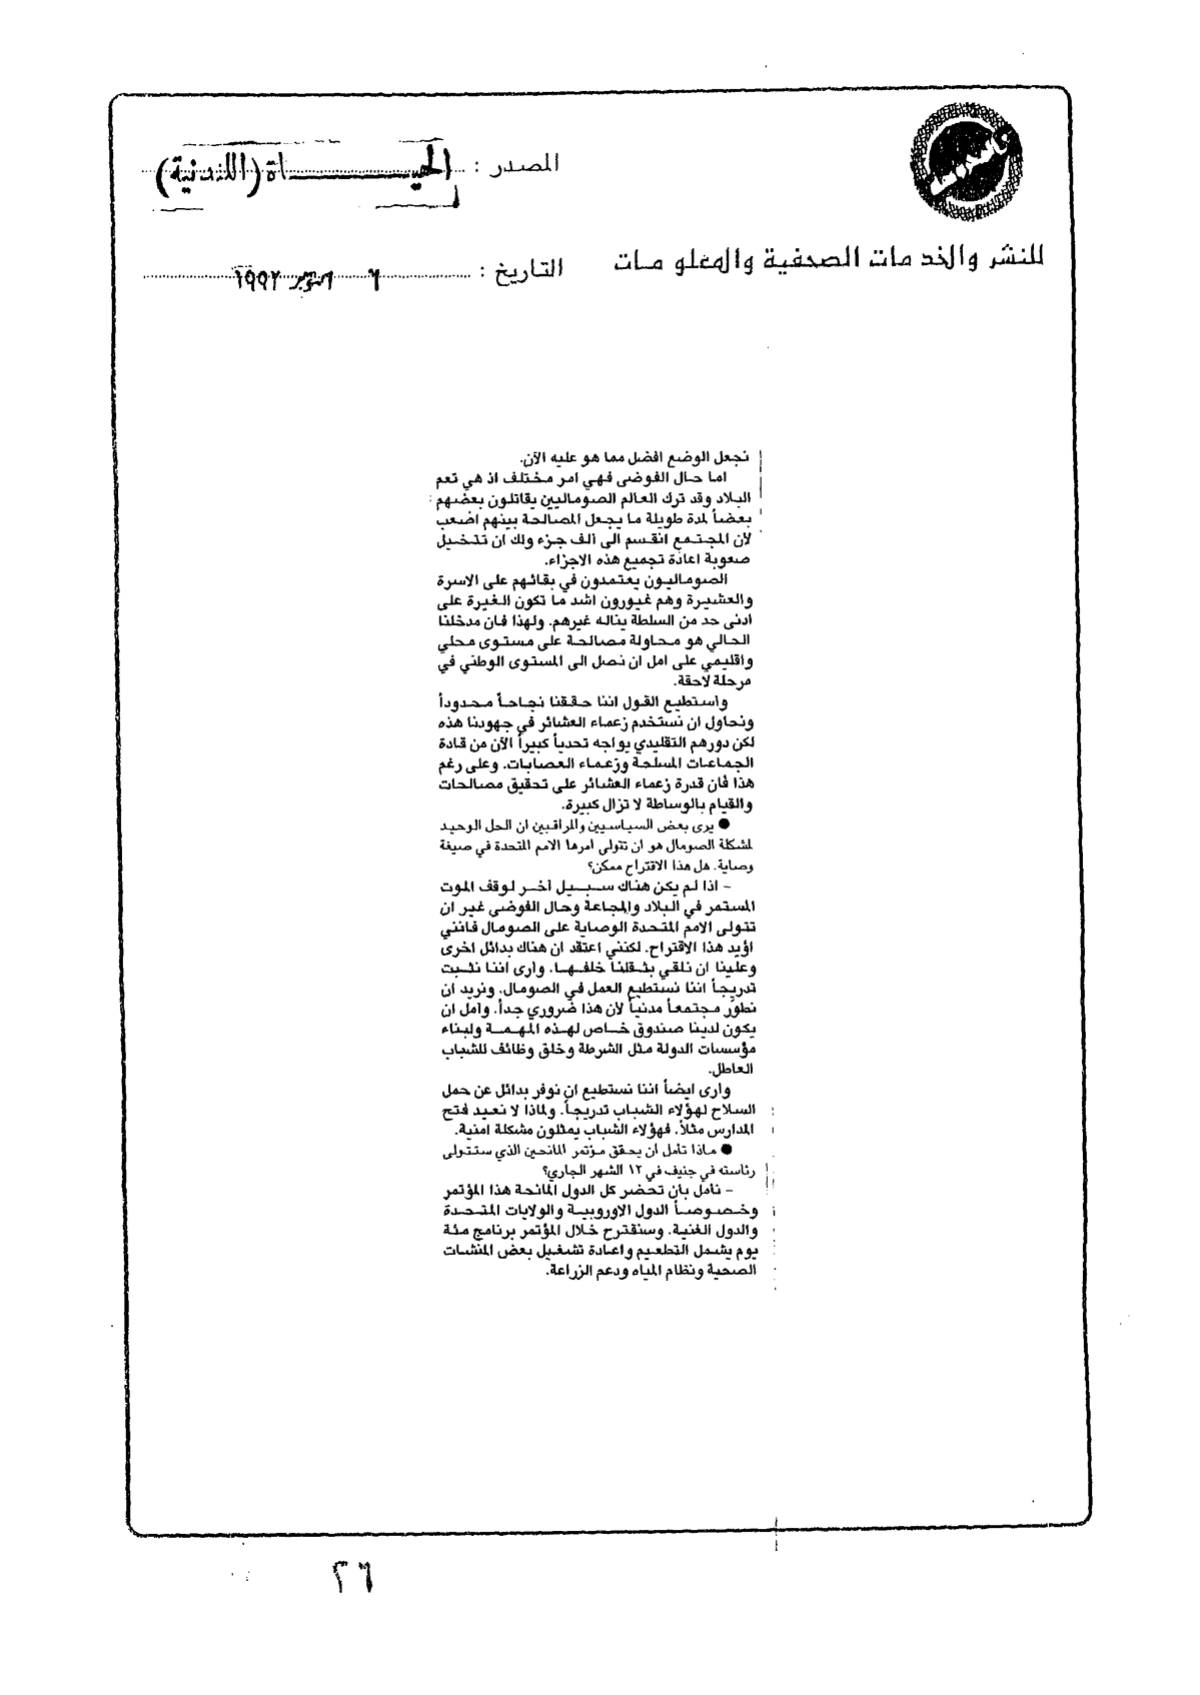 المصدر : الحيـــــــاة (اللندنية)
للنشر والخدمات الصحفية والمعلومات
التاريخ : ٦ اكتوبر ١٩٩٢
نجعل الوضع افضل مما هو عليه الآن.
اما حال الفوضى فهي امر مختلف اذ هي تعم
البلاد وقد ترك العالم الصوماليين يقاتلون بعضهم
بعضاً لمدة طويلة ما يجعل المصالحة بينهم اصعب
لأن المجتمع انقسم الى ألف جزء ولك ان تتخيل
صعوبة اعادة تجميع هذه الاجزاء.
الصوماليون يعتمدون في بقائهم على الاسرة
والعشيرة وهم غيورون اشد ما تكون الغيرة على
ادنى حد من السلطة يناله غيرهم. ولهذا فان مدخلنا
الحالي هو محاولة مصالحة على مستوى محلي
واقليمي على امل ان نصل الى المستوى الوطني في
مرحلة لاحقة.
واستطيع القول اننا حققنا نجاحاً محدوداً
ونحاول ان نستخدم زعماء العشائر في جهودنا هذه
لكن دورهم التقليدي يواجه تحدياً كبيراً الآن من قادة
الجماعات المسلحة وزعماء العصابات. وعلى رغم
هذا فان قدرة زعماء العشائر على تحقيق مصالحات
والقيام بالوساطة لا تزال كبيرة.
● يرى بعض السياسيين والمراقبين ان الحل الوحيد
لمشكلة الصومال هو ان تتولى امرها الامم المتحدة في صيغة
وصاية. هل هذا الاقتراح ممكن؟
- اذا لم يكن هناك سبيل آخر لوقف الموت
المستمر في البلاد والمجاعة وحال الفوضى غير ان
تتولى الامم المتحدة الوصاية على الصومال فانني
اؤيد هذا الاقتراح. لكنني اعتقد ان هناك بدائل اخرى
وعلينا ان نلقي بثقلنا خلفها. وارى اننا نثبت
تدريجاً اننا نستطيع العمل في الصومال. ونريد ان
نطوّر مجتمعاً مدنياً لأن هذا ضروري جداً. وآمل ان
يكون لدينا صندوق خاص لهذه المهمة ولبناء
مؤسسات الدولة مثل الشرطة وخلق وظائف للشباب
العاطل.
وارى ايضاً اننا نستطيع ان نوفر بدائل عن حمل
السلاح لهؤلاء الشباب تدريجاً. ولماذا لا نعيد فتح
المدارس مثلاً. فهؤلاء الشباب يمثلون مشكلة امنية.
● ماذا تأمل ان يحقق مؤتمر المانحين الذي ستتولى
رئاسته في جنيف في ١٢ الشهر الجاري؟
- نأمل بأن تحضر كل الدول المانحة هذا المؤتمر
وخصوصاً الدول الاوروبية والولايات المتحدة
والدول الغنية. وسنقترح خلال المؤتمر برنامج مئة
يوم يشمل التطعيم واعادة تشغيل بعض المنشآت
الصحية ونظام المياه ودعم الزراعة.
٢٦